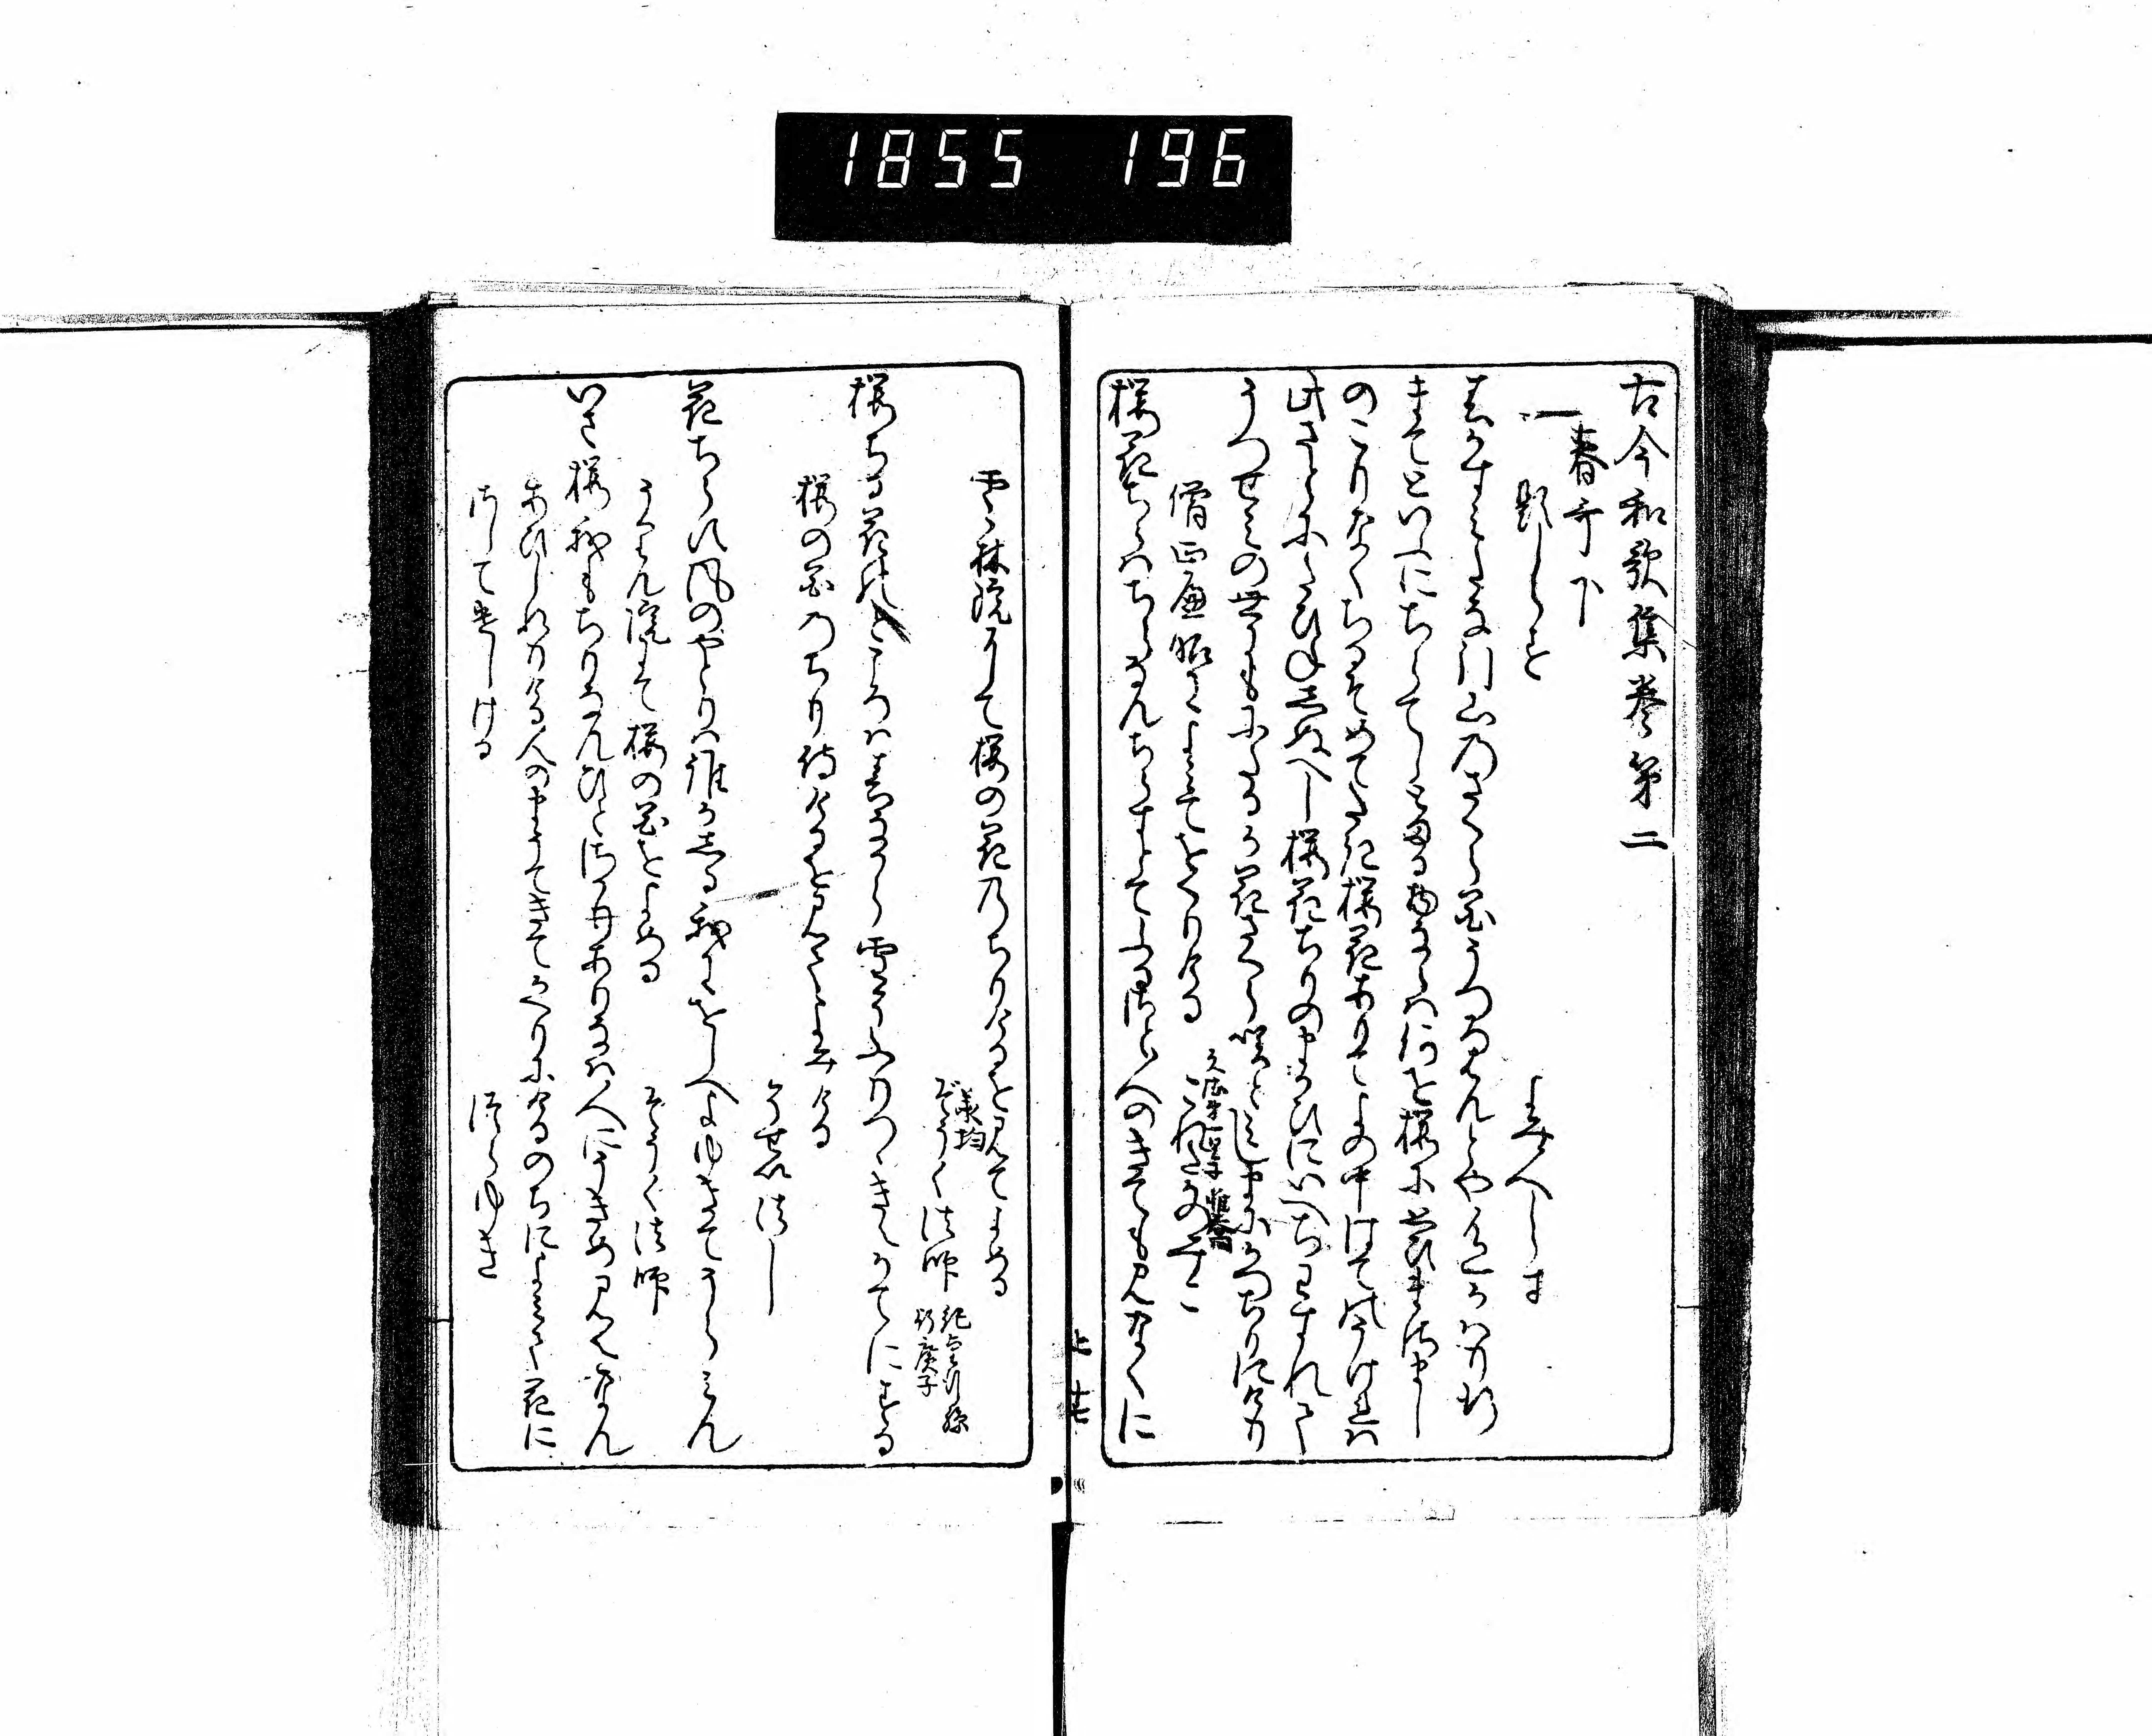 1855 196
古今和歌集巻第二
春哥下
題しらす
よみ人しらす
春かすみたな引山のさくら花うつろはんとや色かはり行
まてといふにちらてしとまる物ならは何を桜に思ひまさまし
のこりなくちるそめてたき桜花ありて世の中はてのうけれは
此さとにたひねしぬへし桜花ちりのまかひにいへちわすれて
うつせみの世にもにたるか花さくら咲とみしまにかつちりにけり
僧正遍昭によみてをくりける
これたかのみこ
桜花ちらはちらなんちらすとてふるさと人のきてもみなくに
雲林院にて桜の花のちりけるを見てよめる
そうく法師
承均
桜ちる花のところは春なから雪そふりつゝきえかてにする
桜の花のちり侍けるを見てよみける
そせい法し
花ちらす風のやとりは誰かしる我にをしへよゆきてうらみん
うりん院にて桜の花をよめる
そうく法師
いさ桜我もちりなんひとさかりありなは人にうきめ見えなん
あひしれりける人のまうてきてかへりにけるのちによみて花に
さしてつかはしける
つらゆき
上 十七